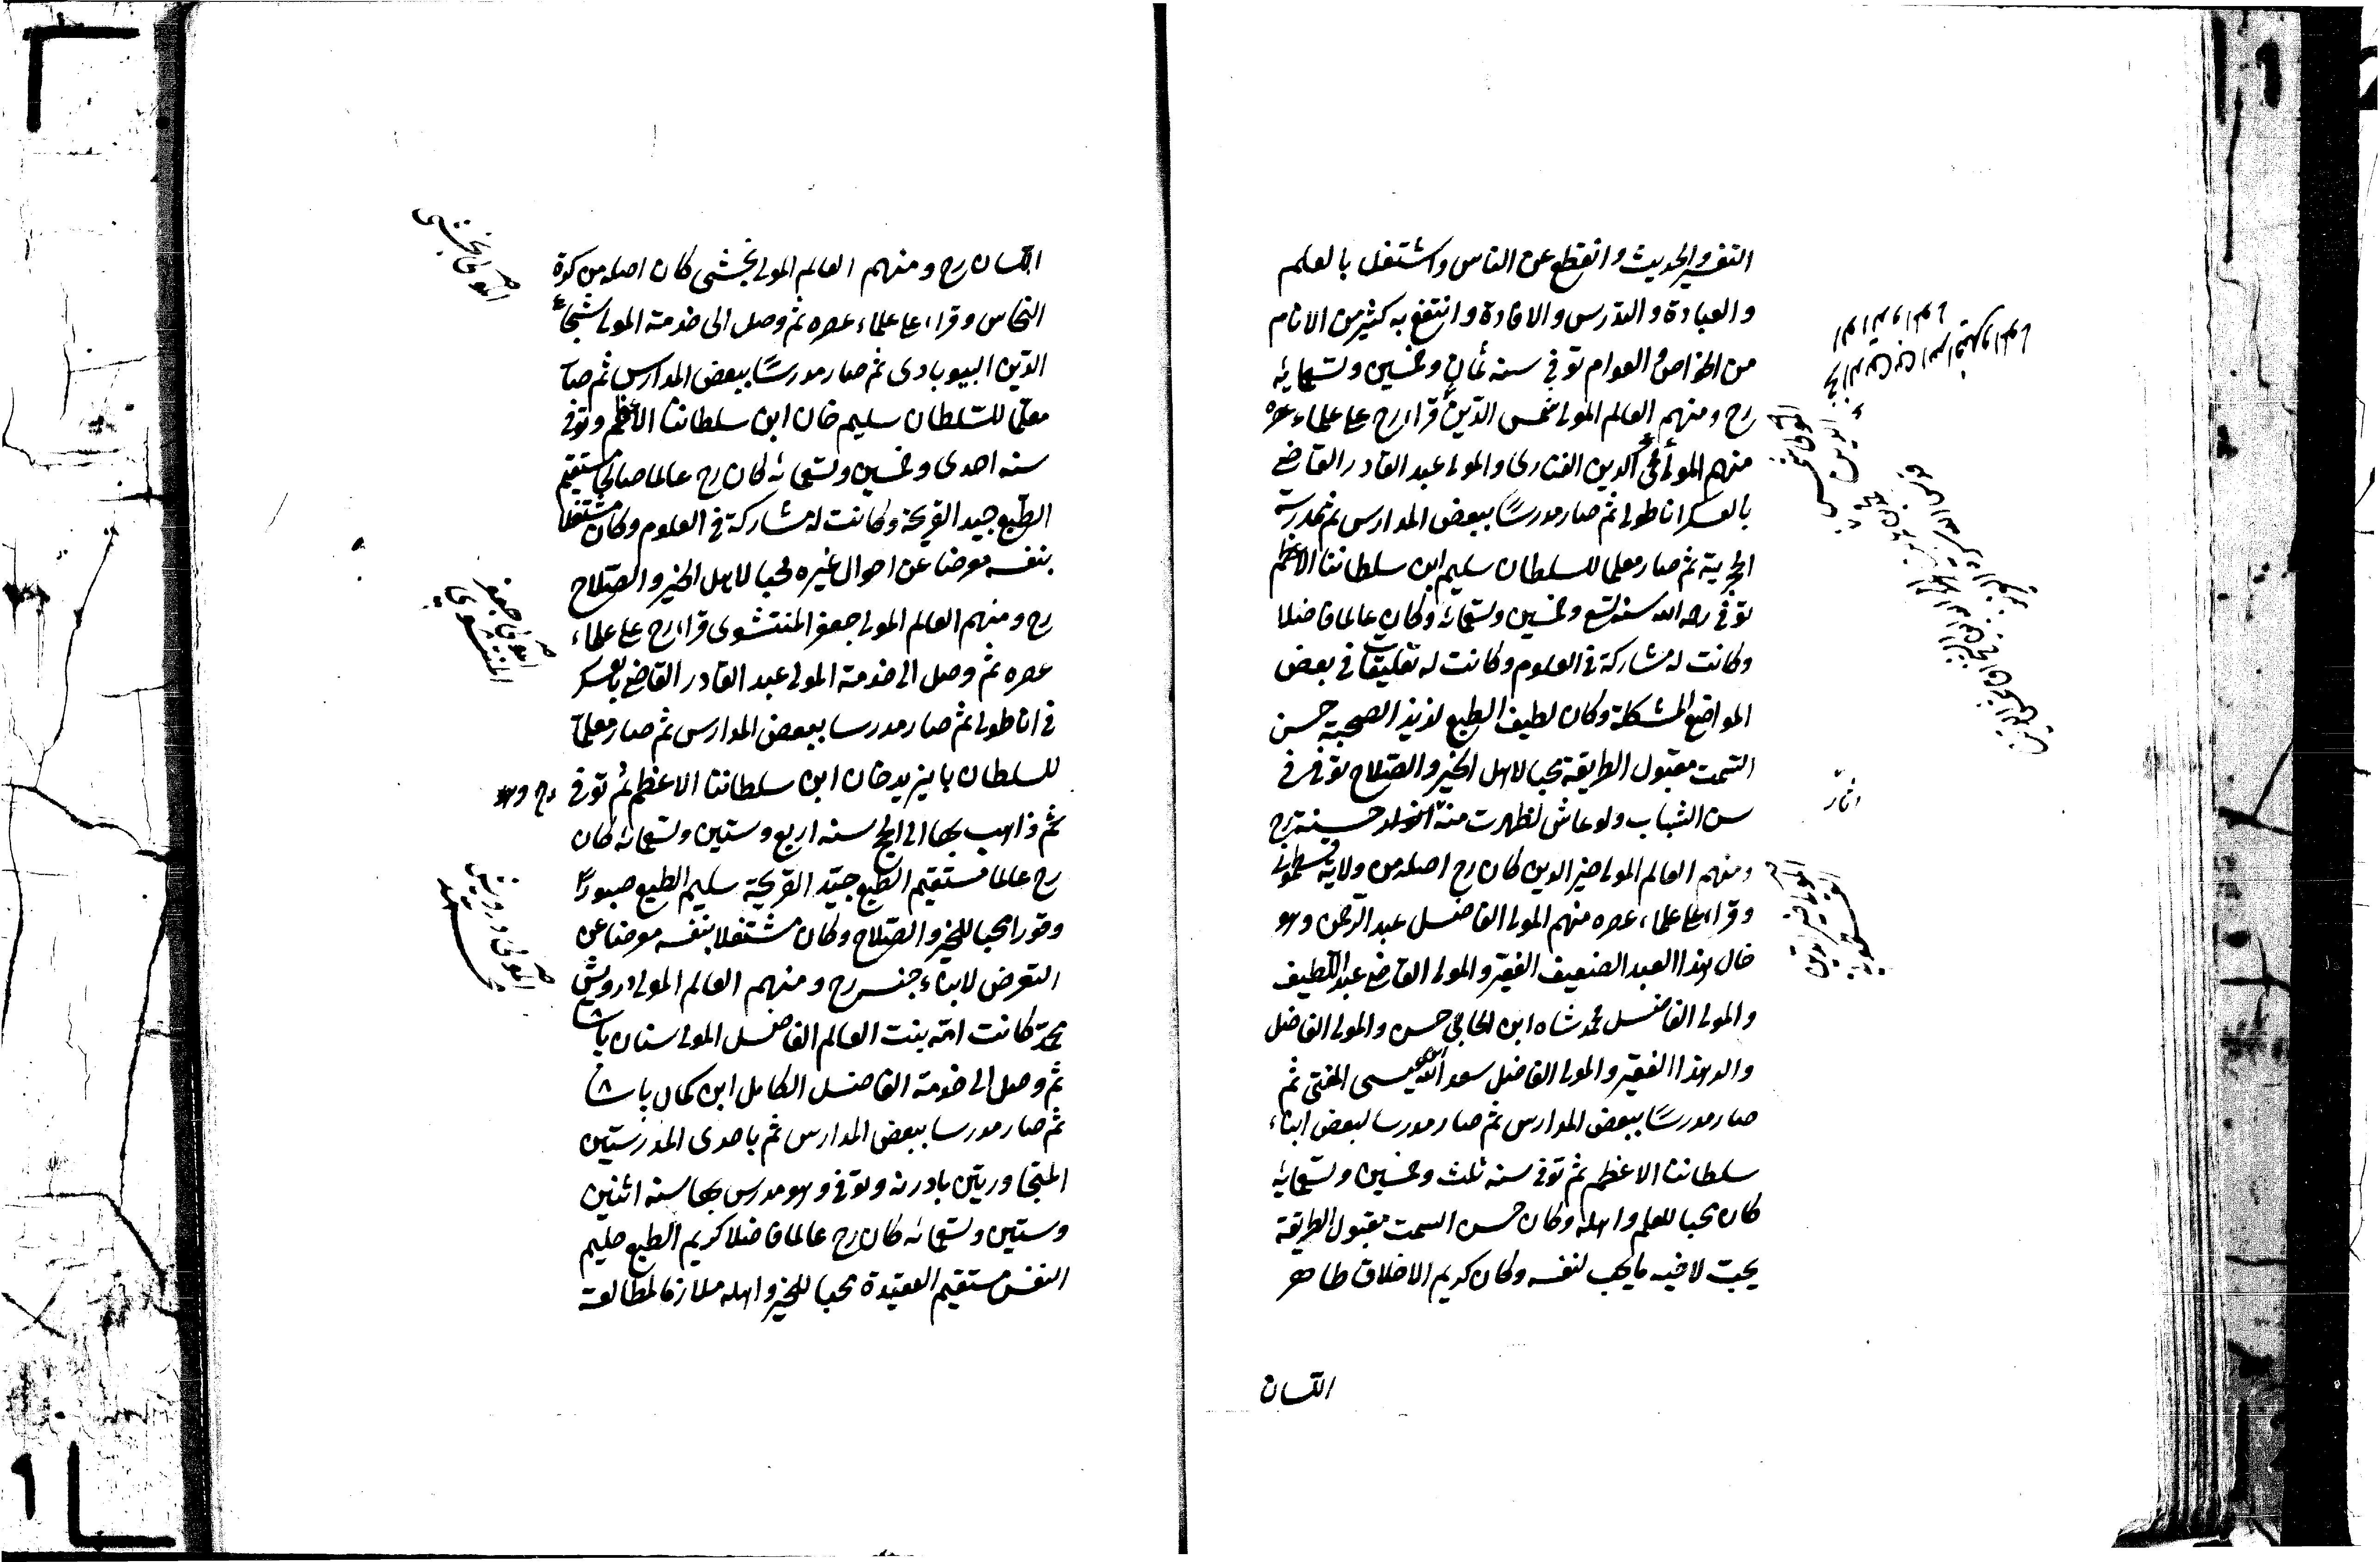 التفسير والحديث وانقطع عن الناس واشتغل بالعلم
والعبادة والتدريس والافادة وانتفع به كثير من الانام
من الخواص والعوام توفى سنة ثمان وخمسين وتسعمائة
رح ومنهم العالم المولى شمس الدين قراء رح على علماء عصره
منهم المولى محيى الدين الفنارى والمولى عبد القادر القاضى
بالعسكر اناطولى ثم صار مدرسًا ببعض المدارس ثم بمدرسة
الحجرية ثم صار معلما للسلطان سليم ابن سلطاننا الاعظم
توفى رحمه الله سنة تسع وخمسين وتسعمائة وكان عالما فاضلا
وكانت له مشاركة فى العلوم وكانت له تعليقات فى بعض
المواضع المشكلة وكان لطيف الطبع لذيذ الصحبة حسن
السمت مقبول الطريقة محبا لاهل الخير والصّلاح توفى فى
سن الشباب ولو عاش لظهرت منه حسنة رح
ومنهم العالم المولى خير الدين كان رح اصله من ولاية قسطمونى
وقراء على علماء عصره منهم المولى الفاضل عبد الرحمن وهو
خال هذا العبد الضعيف الفقير والمولى الفاضل عبد اللطيف
والمولى الفاضل محمد شاه ابن الحاجى حسن والمولى الفاضل
والد هذا الفقير والمولى الفاضل سعد الله عيسى المفتى ثم
صار مدرسًا ببعض المدارس ثم صار مدرسا لبعض ابناء
سلطاننا الاعظم ثم توفى سنة ثلث وخمسين وتسعمائة
كان محبا للعلم واهله وكان حسن السمت مقبول الطريقة
يحبّ لاخيه ما يحب لنفسه وكان كريم الاخلاق طاهر
اللسان
اللسان رح ومنهم العالم المولى بخشى كان اصله من كوة
النحاس وقراء على علماء عصره ثم وصل الى خدمة المولى شجاع
الدّين ثم صار مدرسًا ببعض المدارس ثم صار
معلما للسّلطان سليم خان ابن سلطاننا الاعظم وتوفى
سنه احدى وخمسين وتسعمائة كان رح عالما صالحا مستقيم
الطّبع جيد القريحة وكانت له مشاركة فى العلوم وكان مشتغلا
بنفسه معرضا عن احوال غيره محبا لاهل الخير والصّلاح
رح ومنهم العالم المولى جعفر المنتشوى قراء رح على علماء
عصره ثم وصل الى خدمة المولى عبد القادر القاضى بالعسكر
فى اناطولى ثم صار مدرسا ببعض المدارس ثم صار معلمًا
للسلطان بايزيد خان ابن سلطاننا الاعظم ثم توفى رح وهو
ثم ذاهب بها الى الحج سنه اربع وستين وتسعمائة كان
رح عالما مستقيم الطبع جيّد القريحة سليم الطبع صبورًا
وقورا محبا للخير والصّلاح وكان مشتغلا بنفسه معرضا عن
التعرض لابناء جنسه رح ومنهم العالم المولى درويش
محمد كانت امّه بنت العالم الفاضل المولى سنان پاشا
ثم وصل الى خدمة الفاضل الكامل ابن كمال پاشا
ثم صار مدرسا ببعض المدارس ثم باحدى المدرستين
المتجاورتين بادرنه وتوفى وهو مدرس بها سنة اثنين
وستين وتسعمائة كان رح عالما فاضلا كريم الطبع حليم
النفس مستقيم العقيدة محبا للخير واهله ملازما لمطالعة
المولى بخشى
المولى جعفر
المنتشوى
المولى درويش
محمد
المولى شمس
الدين
المولى خير الدين